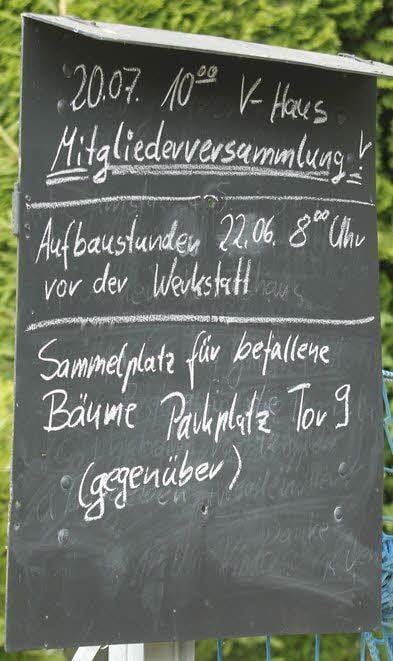 20.07. 10⁰⁰ V-Haus
Mitgliederversammlung!
Aufbaustunden 22.06. 8⁰⁰ Uhr
vor der Werkstatt
Sammelplatz für befallene
Bäume Parkplatz Tor 9
(gegenüber)